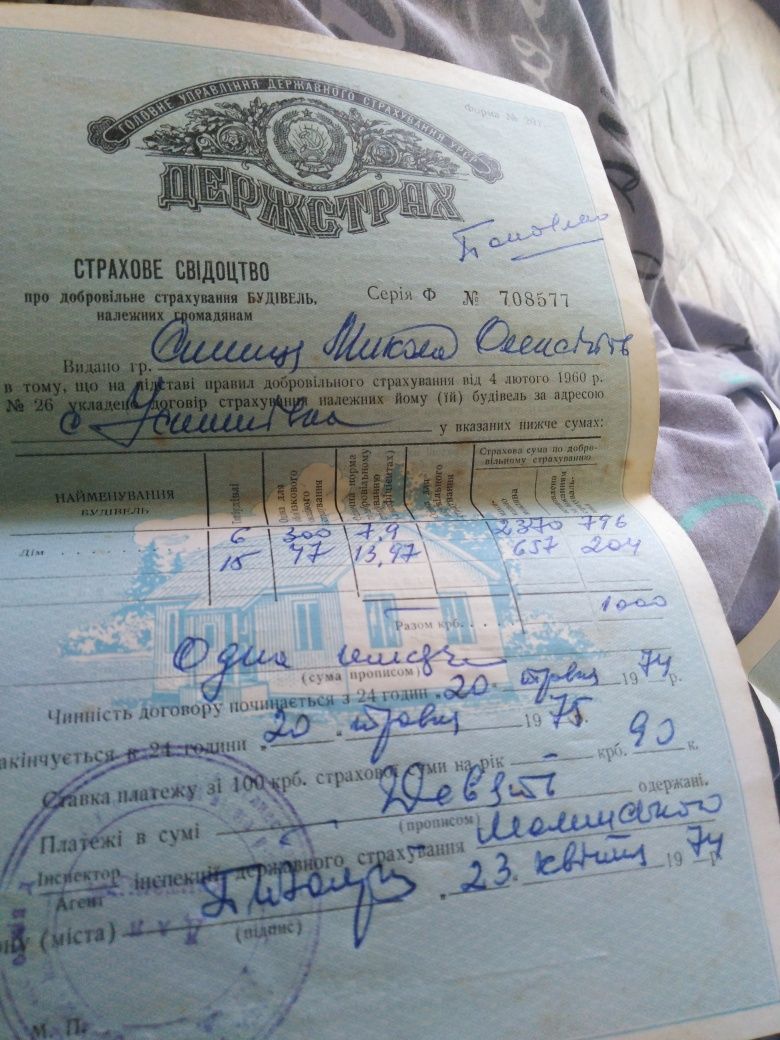 ГОЛОВНЕ УПРАВЛІННЯ ДЕРЖАВНОГО СТРАХУВАННЯ УРСР
Форма №
ДЕРЖСТРАХ
СТРАХОВЕ СВІДОЦТВО
про добровільне страхування БУДІВЕЛЬ,
належних громадянам
Серія Ф № 708577
Видано гр. Микола
в тому, що на підставі правил добровільного страхування від 4 лютого 1960 р.
№ 26 укладено договір страхування належних йому (їй) будівель за адресою
с у вказаних нижче сумах:
НАЙМЕНУВАННЯ БУДІВЕЛЬ
Страхова сума по добровільному страхуванню
6 300 7,9 2370 796
Дім . . . . . . . 15 47 13,97 657 204
Разом крб. . . . 1000
Одна тисяча
(сума прописом)
Чинність договору починається з 24 годин „20" травня 1974 р.
закінчується в 24 години „20" травня 1975 р.
Ставка платежу зі 100 крб. страхової суми на рік крб. 90 к.
Платежі в сумі Дев'ять одержані.
(прописом)
Інспектор
Агент
інспекції державного страхування
(підпис)
ону (міста) „23" квітня 1974 р.
М. П.